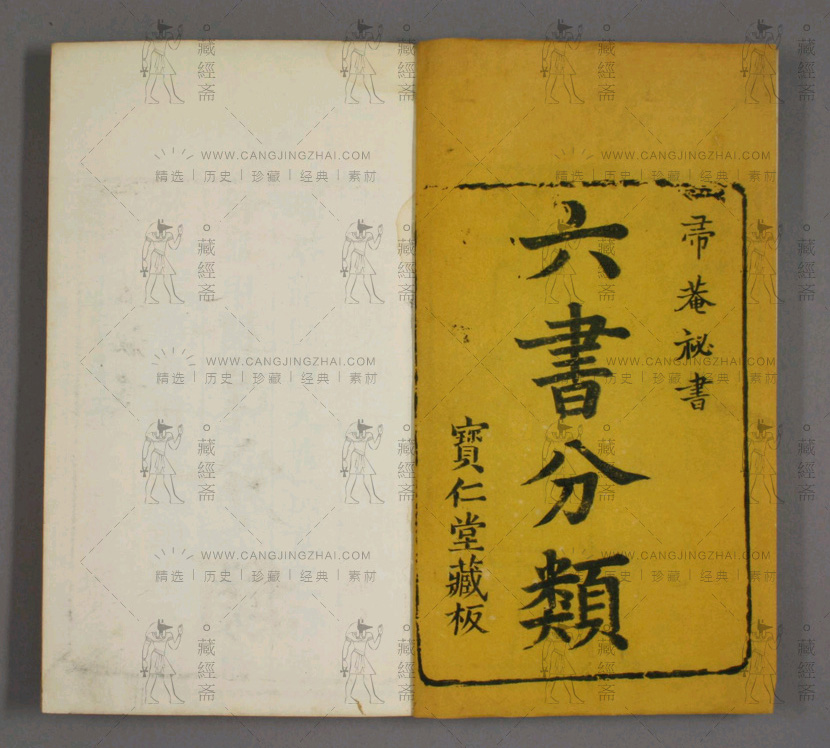 帚菴祕書
六書分類
寶仁堂藏板
藏經斋
WWW.CANGJINGZHAI.COM
精选 | 历史 | 珍藏 | 经典 | 素材